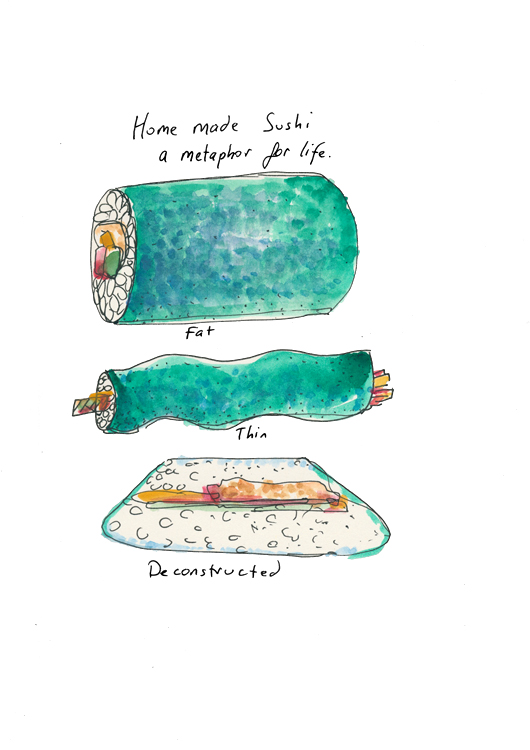 Home made Sushi
a metaphor for life.
Fat
Thin
Deconstructed